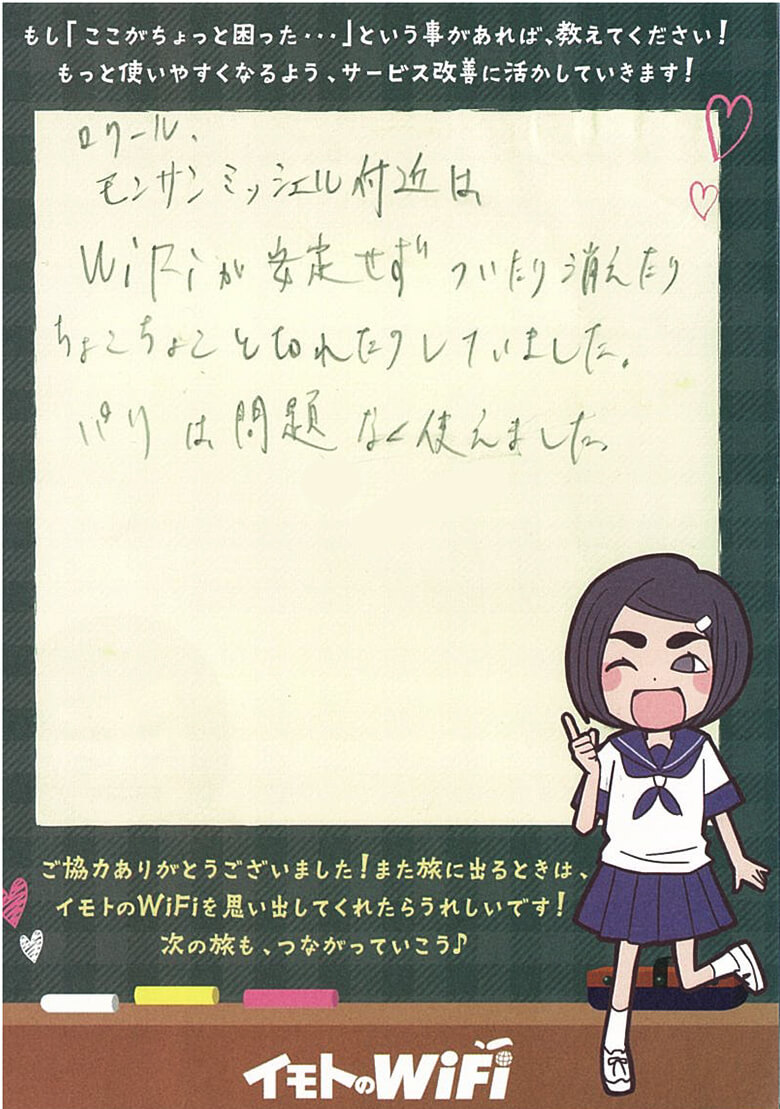 もし「ここがちょっと困った・・・」という事があれば、教えてください！
もっと使いやすくなるよう、サービス改善に活かしていきます！
ロワール、
モンサンミッシェル付近は
WiFiが安定せずついたり消えたり
ちょこちょこと切れたりしていました。
パリは問題なく使えました。
ご協力ありがとうございました！また旅に出るときは、
イモトのWiFiを思い出してくれたらうれしいです！
次の旅も、つながっていこう♪
イモトのWiFi